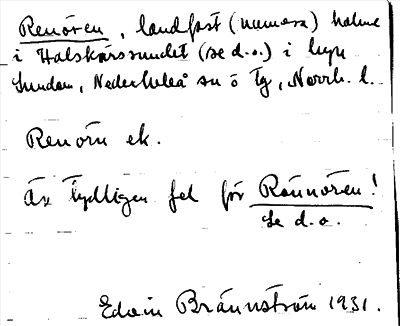 Renören, landfast (numera) holme
i Halskärssundet (se d.o.) i byn
Sundom, Nederluleå sn ö Tg, Norrb. l.
Renörn ek.
Är tydligen fel för Rännören!
Se d.o.
Edvin Brännström 1931.